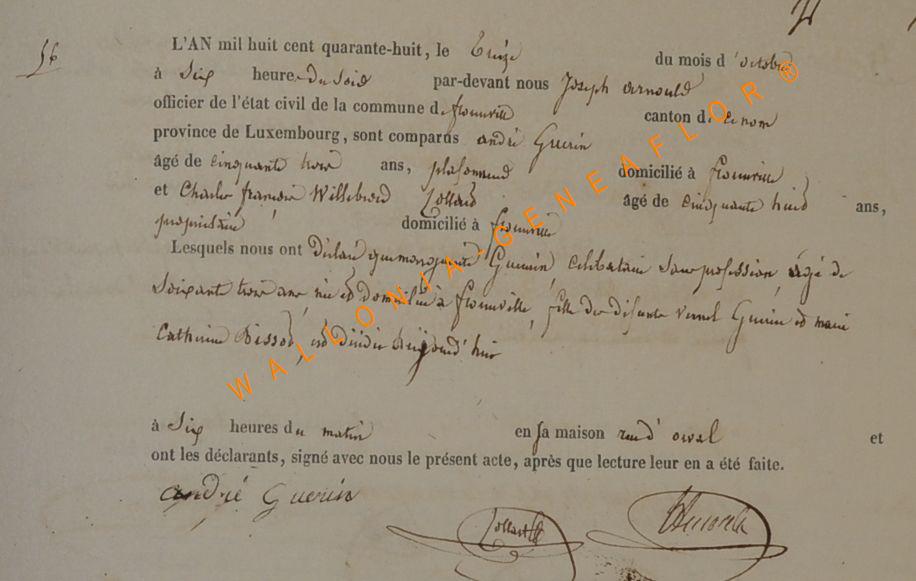 56
L'AN mil huit cent quarante-huit, le treize du mois d'octobre
à Six heures du Soir par-devant nous Joseph Arnould
officier de l'état civil de la commune de florenville canton de ce nom
province de Luxembourg, sont comparus andré Guérin
âgé de cinquante trois ans, plafonneur domicilié à florenville
et Charles françois Willebrord Collard âgé de cinquante huit ans,
propriétaire domicilié à florenville
Lesquels nous ont déclaré que Guérin, célibataire sans profession, âgé de
Soixante trois ans né et domicilié à florenville, fille des défunts Guérin et marie
Catherine et décédée aujourd'hui
à Six heures du matin en sa maison rue d'orval et
ont les déclarants, signé avec nous le présent acte, après que lecture leur en a été faite.
andré Guerin
Collard
WALLONIA-GENEAFLOR®